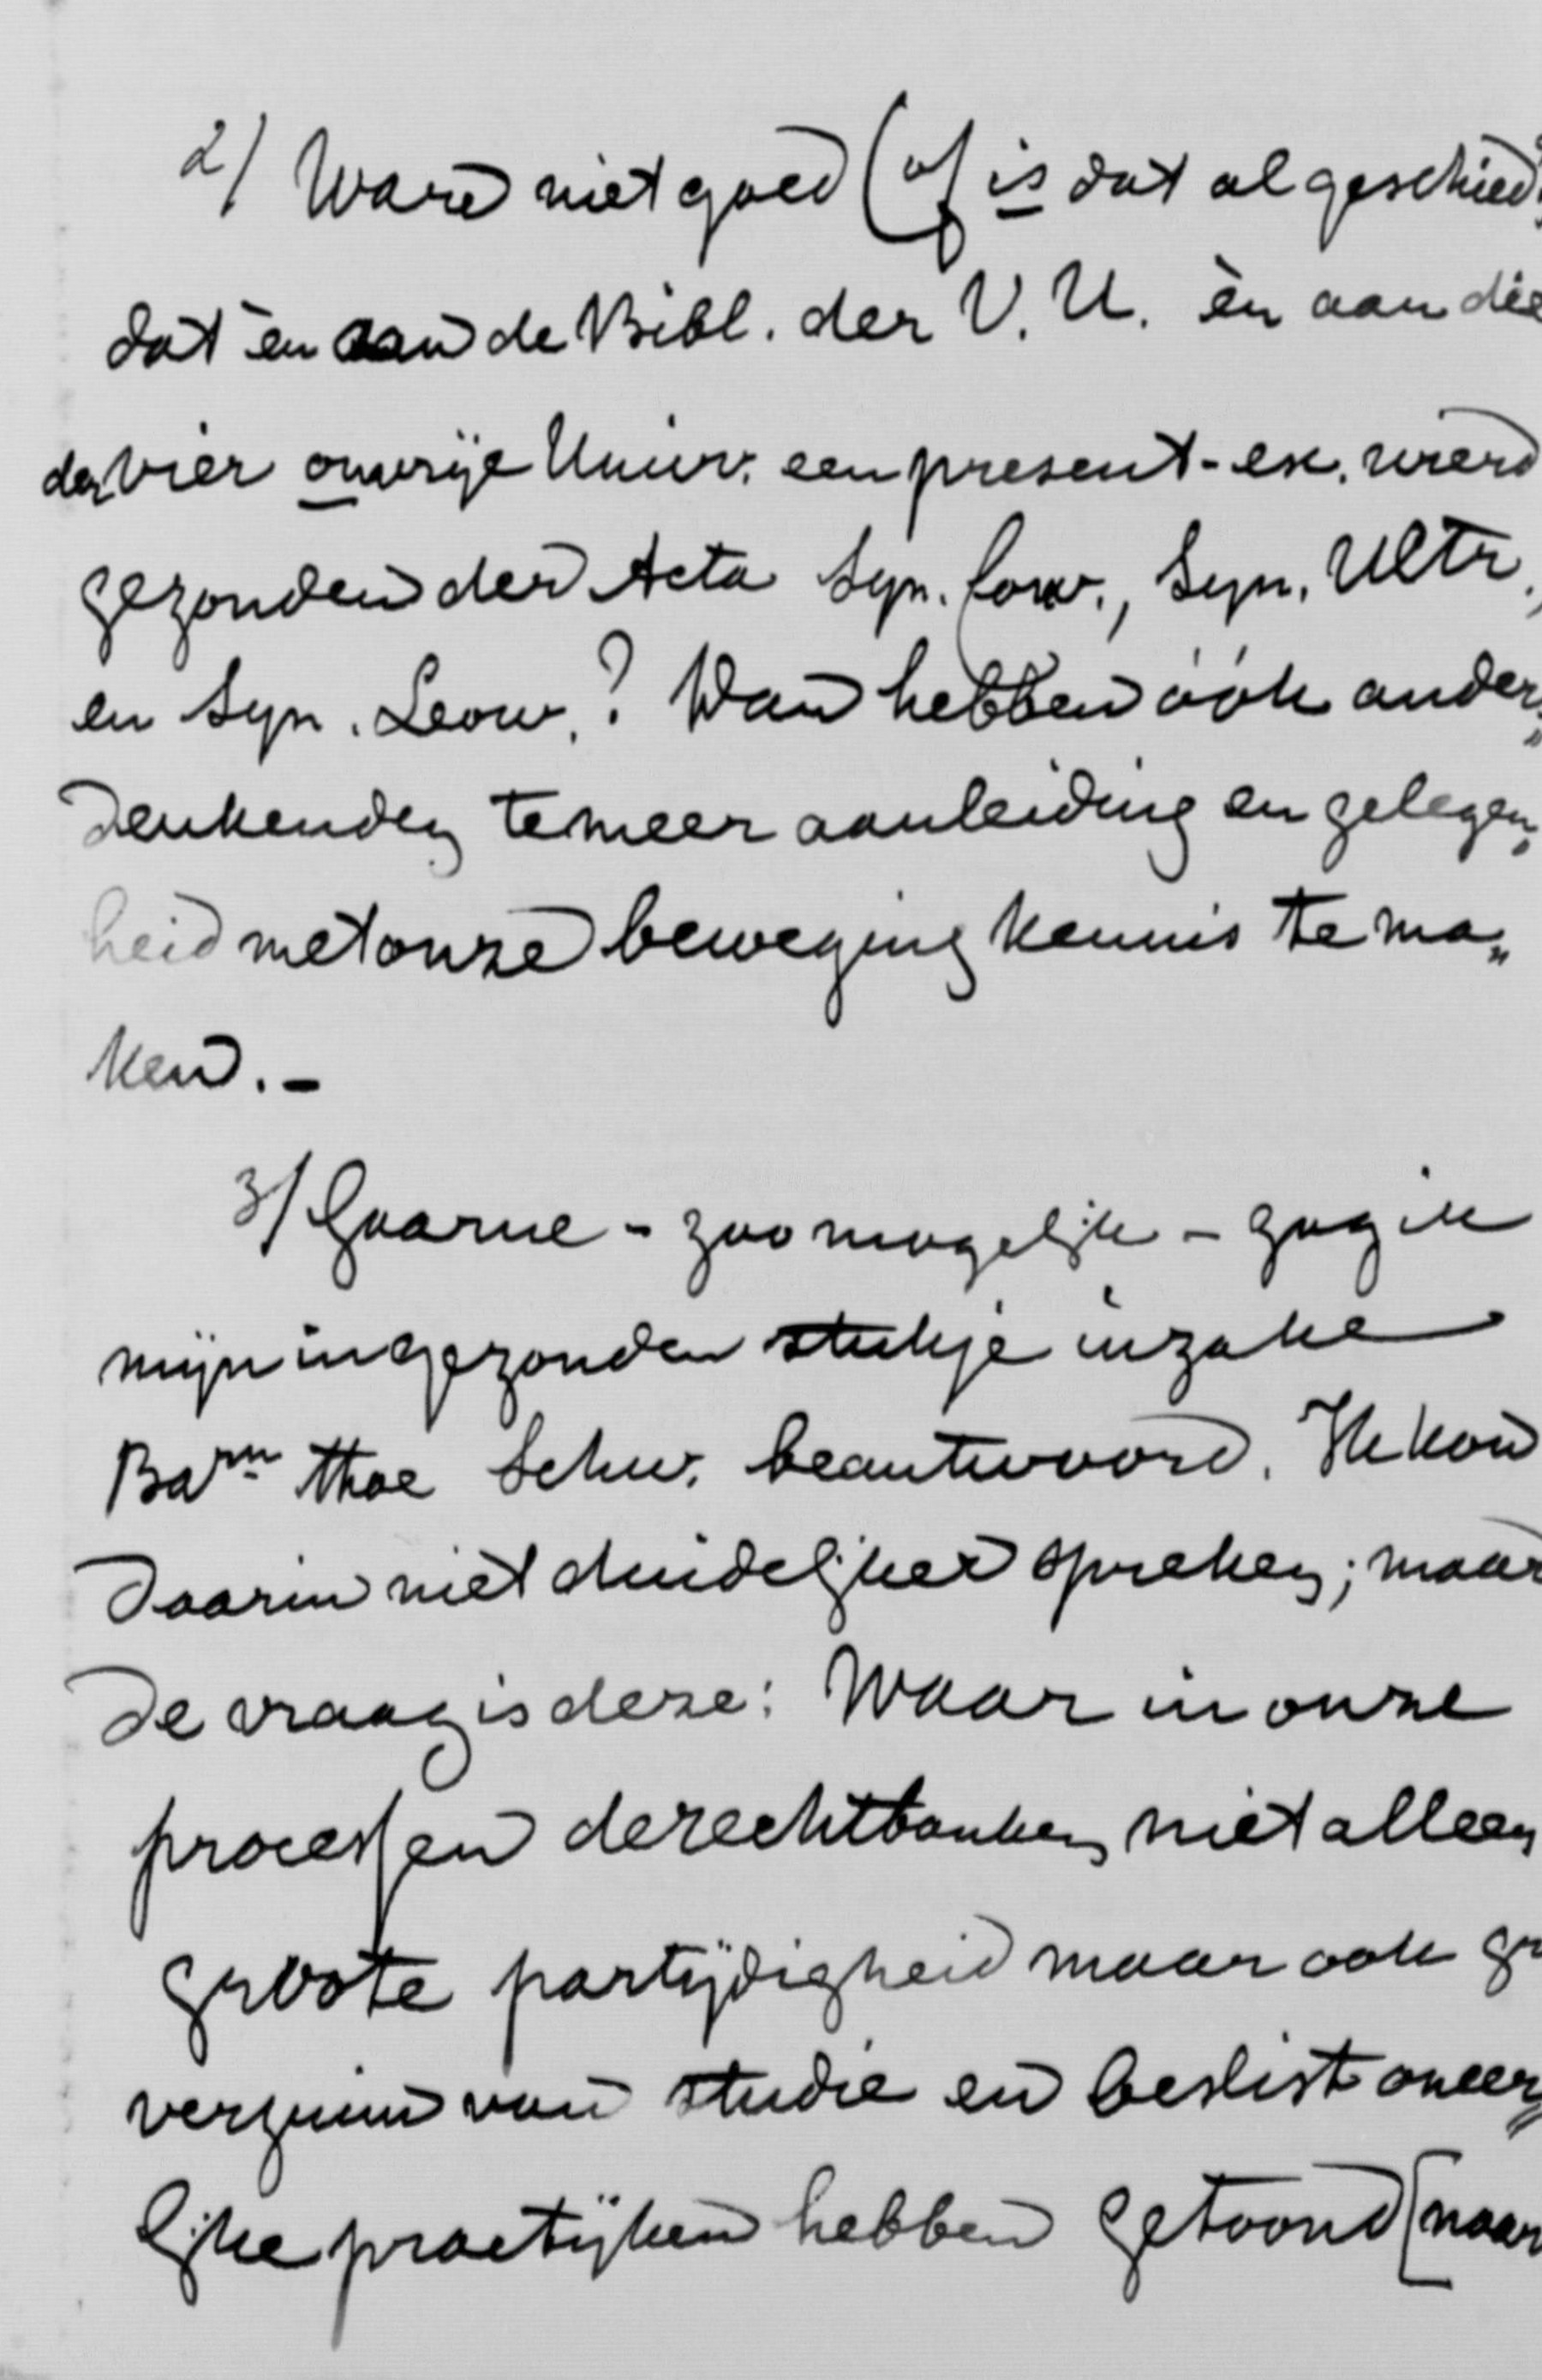 2/ Ware niet goed (of is dat al geschied
dat èn aan de Bibl. der V. U. èn aan die
der vier onvrije Univ. een present-ex. werd
gezonden der Acta Syn. Conv., Syn. Ultr.,
en Syn. Leow.? Dan hebben óók anders„
denkenden te meer aanleiding en gelegen„
heid met onze beweging kennis te ma„
ken. –
3/ Gaarne – zoo mogelijk – zag ik
mijn ingezonden stukje inzake
Barn thoe Schw. beantwoord. Ik kon
daarin niet duidelijker spreken; maar
de vraag is deze: Waar in onze
processen de rechtbanken niet alleen
groote partijdigheid maar ook gr
verzuim van studie en beslist oneer„
lijke practijken hebben getoond [naar